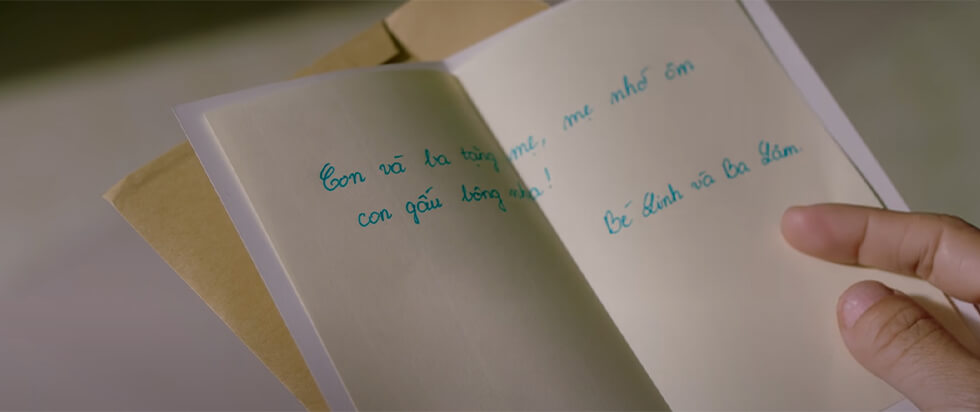 Con và ba tặng mẹ, mẹ nhớ ôm
con gấu bông nha!
Bé Linh và Ba Lâm.